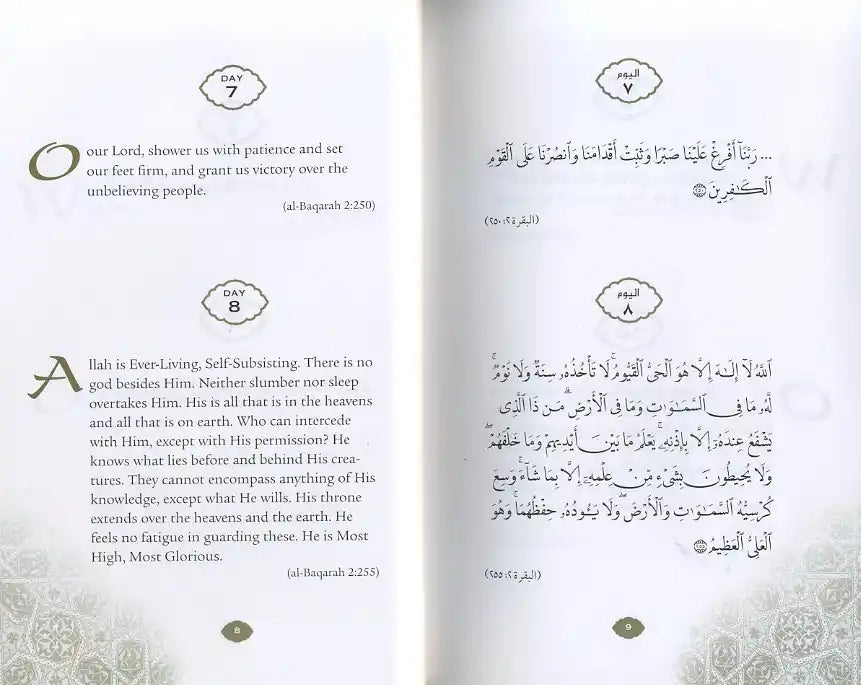 DAY
7
O our Lord, shower us with patience and set
our feet firm, and grant us victory over the
unbelieving people.
(al-Baqarah 2:250)
DAY
8
Allah is Ever-Living, Self-Subsisting. There is no
god besides Him. Neither slumber nor sleep
overtakes Him. His is all that is in the heavens
and all that is on earth. Who can intercede
with Him, except with His permission? He
knows what lies before and behind His crea-
tures. They cannot encompass anything of His
knowledge, except what He wills. His throne
extends over the heavens and the earth. He
feels no fatigue in guarding these. He is Most
High, Most Glorious.
(al-Baqarah 2:255)
8
اليوم
٧
... رَبَّنَآ أَفْرِغْ عَلَيْنَا صَبْرًا وَثَبِّتْ أَقْدَامَنَا وَٱنصُرْنَا عَلَى ٱلْقَوْمِ
ٱلْكَـٰفِرِينَ ۝٢٥٠
(البقرة ٢: ٢٥٠)
اليوم
٨
ٱللَّهُ لَآ إِلَـٰهَ إِلَّا هُوَ ٱلْحَىُّ ٱلْقَيُّومُ ۚ لَا تَأْخُذُهُۥ سِنَةٌ وَلَا نَوْمٌ ۚ
لَّهُۥ مَا فِى ٱلسَّمَـٰوَٰتِ وَمَا فِى ٱلْأَرْضِ ۗ مَن ذَا ٱلَّذِى
يَشْفَعُ عِندَهُۥٓ إِلَّا بِإِذْنِهِۦ ۚ يَعْلَمُ مَا بَيْنَ أَيْدِيهِمْ وَمَا خَلْفَهُمْ ۖ
وَلَا يُحِيطُونَ بِشَىْءٍ مِّنْ عِلْمِهِۦٓ إِلَّا بِمَا شَآءَ ۚ وَسِعَ
كُرْسِيُّهُ ٱلسَّمَـٰوَٰتِ وَٱلْأَرْضَ ۖ وَلَا يَـُٔودُهُۥ حِفْظُهُمَا ۚ وَهُوَ
ٱلْعَلِىُّ ٱلْعَظِيمُ ۝٢٥٥
(البقرة ٢: ٢٥٥)
9